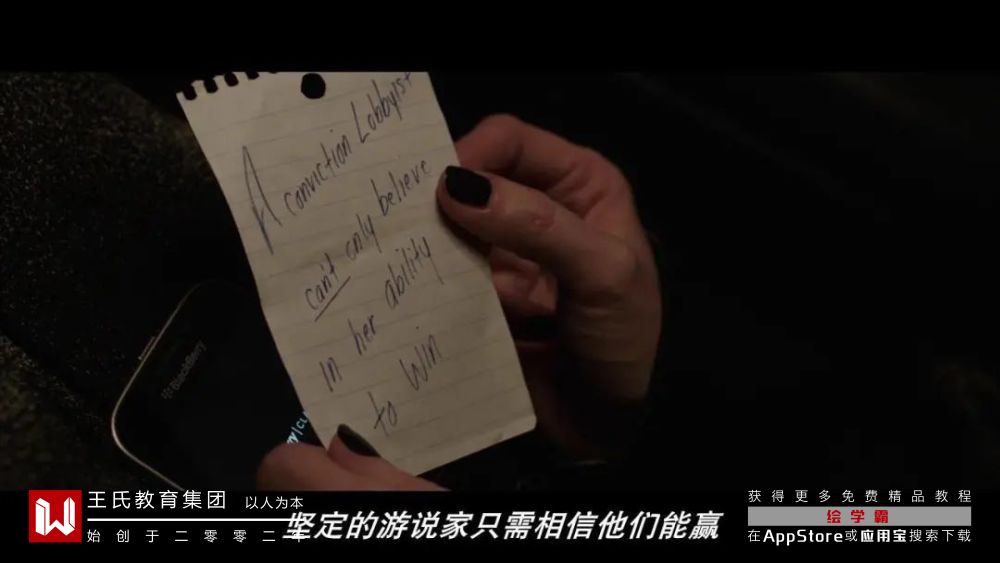 A conviction Lobbyist
can't only believe
in her ability
to win
BlackBerry
王氏教育集团 以人为本
始创于二零零二年
坚定的游说家只需相信他们能赢
获得更多免费精品教程
绘学霸
在AppStore或应用宝搜索下载